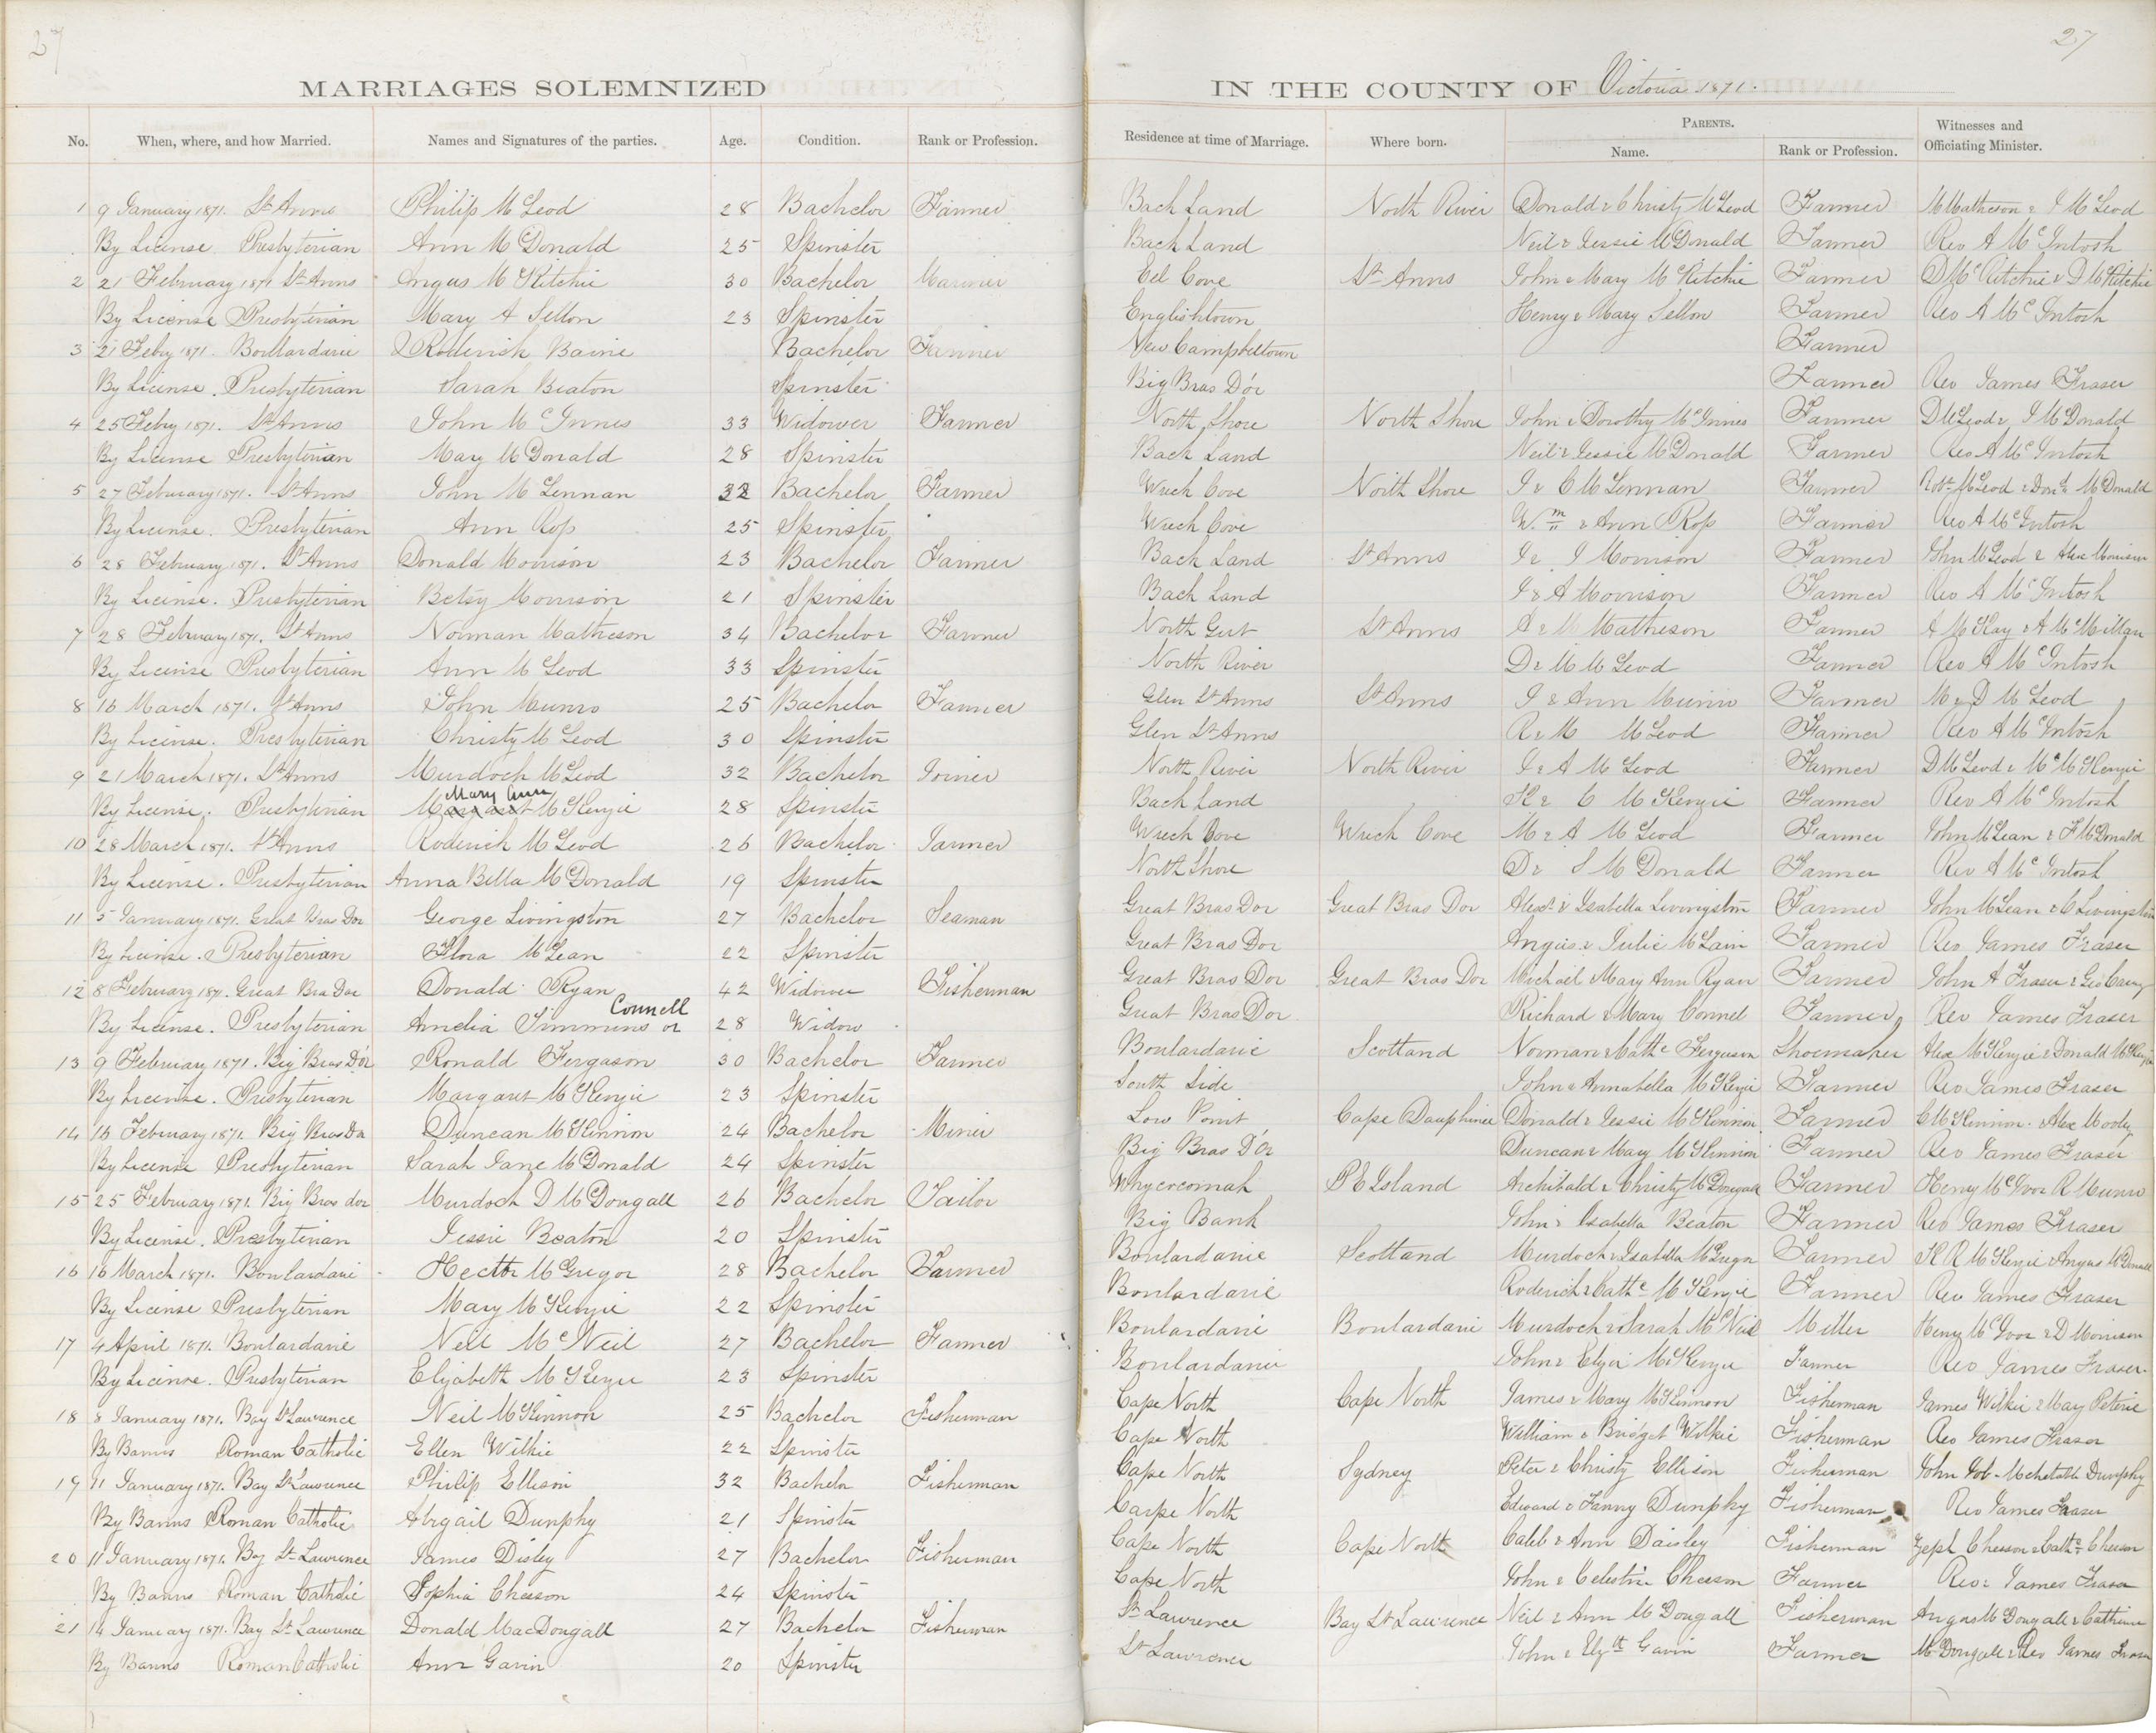 27
27
MARRIAGES SOLEMNIZED IN THE COUNTY OF Victoria 1871.
No. When, where, and how Married. Names and Signatures of the parties. Age. Condition. Rank or Profession. Residence at time of Marriage. Where born. PARENTS. Name. Rank or Profession. Witnesses and Officiating Minister.
1 9 January 1871. St Anns Philip McLeod 28 Bachelor Farmer Back Land North River Donald & Christy McLeod Farmer M Matheson & J McLeod
By License. Presbyterian Ann McDonald 25 Spinster Back Land Neil & Jessie McDonald Farmer Rev A McIntosh
2 21 February 1871 St Anns Angus McRitchie 30 Bachelor Mariner Eel Cove St Anns John & Mary McRitchie Farmer D McRitchie & D McRitchie
By License Presbyterian Mary A Sellon 23 Spinster Englishtown Henry & Mary Sellon Farmer Rev A McIntosh
3 21 Feby 1871. Boulardarie Roderick Baine Bachelor Farmer New Campbeltown Farmer
By License. Presbyterian Sarah Beaton Spinster Big Bras D'or Farmer Rev James Fraser
4 25 Feby 1871. St Anns John McInnes 33 Widower Farmer North Shore North Shore John & Dorothy McInnes Farmer D McLeod & J McDonald
By License Presbyterian Mary McDonald 28 Spinster Back Land Neil & Jessie McDonald Farmer Rev A McIntosh
5 27 February 1871. St Anns John McLennan 32 Bachelor Farmer Wreck Cove North Shore J & C McLennan Farmer Robt McLeod & Dond McDonald
By License. Presbyterian Ann Ross 25 Spinster Wreck Cove Wm & Ann Ross Farmer Rev A McIntosh
6 28 February 1871. St Anns Donald Morrison 23 Bachelor Farmer Back Land St Anns J & J Morrison Farmer John McLeod & Alex Morrison
By License. Presbyterian Betsy Morrison 21 Spinster Back Land J & A Morrison Farmer Rev A McIntosh
7 28 February 1871. St Anns Norman Matheson 34 Bachelor Farmer North Gut St Anns A & M Matheson Farmer A McKay & A McMillan
By License Presbyterian Ann McLeod 33 Spinster North River D & M McLeod Farmer Rev A McIntosh
8 16 March 1871. St Anns John Munro 25 Bachelor Farmer Glen St Anns St Anns J & Ann Munro Farmer M & D McLeod
By License. Presbyterian Christy McLeod 30 Spinster Glen St Anns R & M McLeod Farmer Rev A McIntosh
9 21 March 1871. St Anns Murdoch McLeod 32 Bachelor Joiner North River North River J & A McLeod Farmer D McLeod & M McKenzie
Mary Ann
By License. Presbyterian Margaret McKenzie 28 Spinster Back Land K & C McKenzie Farmer Rev A McIntosh
10 28 March 1871. St Anns Roderick McLeod 26 Bachelor Farmer Wreck Cove Wreck Cove M & A McLeod Farmer John McLean & F McDonald
By License. Presbyterian Anna Bella McDonald 19 Spinster North Shore D & S McDonald Farmer Rev A McIntosh
11 5 January 1871. Great Bras Dor George Livingston 27 Bachelor Seaman Great Bras Dor Great Bras Dor Alexr & Isabella Livingston Farmer John McLean & C Livingston
By License. Presbyterian Flora McLean 22 Spinster Great Bras Dor Angus & Julie McLain Farmer Rev James Fraser
12 8 February 1871. Great Bra Dor Donald Ryan 42 Widower Fisherman Great Bras Dor Great Bras Dor Michael & Mary Ann Ryan Farmer John A Fraser & Geo
Connell
By License. Presbyterian Amelia Simmons or 28 Widow Great Bras Dor Richard & Mary Connel Farmer Rev James Fraser
13 9 February 1871. Big Bras D'or Ronald Fergason 30 Bachelor Farmer Boulardarie Scotland Norman & Cathe Ferguson Shoemaker Alex McKenzie & Donald McKenzie
By License. Presbyterian Margaret McKenzie 23 Spinster South Side John & Annabella McKenzie Farmer Rev James Fraser
14 16 February 1871. Big Bras Dor Duncan McKinnon 24 Bachelor Miner Low Point Cape Dauphine Donald & Jessie McKinnon Farmer C McKinnon & Alex Moody
By License Presbyterian Sarah Jane McDonald 24 Spinster Big Bras D'Or Duncan & Mary McKinnon Farmer Rev James Fraser
15 25 February 1871. Big Bras dor Murdoch D McDougall 26 Bachelor Tailor Whycocomah P E Island Archibald & Christy McDougall Farmer Henry McIvor R Munro
By License. Presbyterian Jessie Beaton 20 Spinster Big Bank John & Isabella Beaton Farmer Rev James Fraser
16 16 March 1871. Boulardarie Hector McGregor 28 Bachelor Farmer Boulardarie Scotland Murdoch & Isabella McGregor Farmer K R McKenzie & Angus McDonald
By License Presbyterian Mary McKenzie 22 Spinster Boulardarie Roderick & Cathe McKenzie Farmer Rev James Fraser
17 4 April 1871. Boulardarie Neil McNeil 27 Bachelor Farmer Boulardarie Boulardarie Murdoch & Sarah McNeil Miller Henry McIvor & D Morrison
By License. Presbyterian Elizabeth McKenzie 23 Spinster Boulardarie John & Eliza McKenzie Farmer Rev James Fraser
18 8 January 1871. Bay St Lawrence Neil McKinnon 25 Bachelor Fisherman Cape North Cape North James & Mary McKinnon Fisherman James Wilkie & Mary Peterie
By Banns Roman Catholic Ellen Wilkie 22 Spinster Cape North William & Bridget Wilkie Fisherman Rev James Fraser
19 11 January 1871. Bay St Lawrence Philip Ellison 32 Bachelor Fisherman Cape North Sydney Peter & Christy Ellison Fisherman John Dunphy
By Banns Roman Catholic Abigail Dunphy 21 Spinster Carpe North Edward & Fanny Dunphy Fisherman Rev James Fraser
20 11 January 1871. Bay St Lawrence James Disley 27 Bachelor Fisherman Cape North Cape North Caleb & Ann Daisley Fisherman Jepl Cheeson & Cathe Cheeson
By Banns Roman Catholic Sophia Cheeson 24 Spinster Cape North John & Celestin Cheeson Farmer Rev James Fraser
21 14 January 1871. Bay St Lawrence Donald MacDougall 27 Bachelor Fisherman St Lawrence Bay St Lawrence Neil & Ann McDougall Fisherman Angus McDougall & Cathrine
By Banns Roman Catholic Ann Gavin 20 Spinster St Lawrence John & Elyth Gavin Farmer McDougall & Rev James Fraser